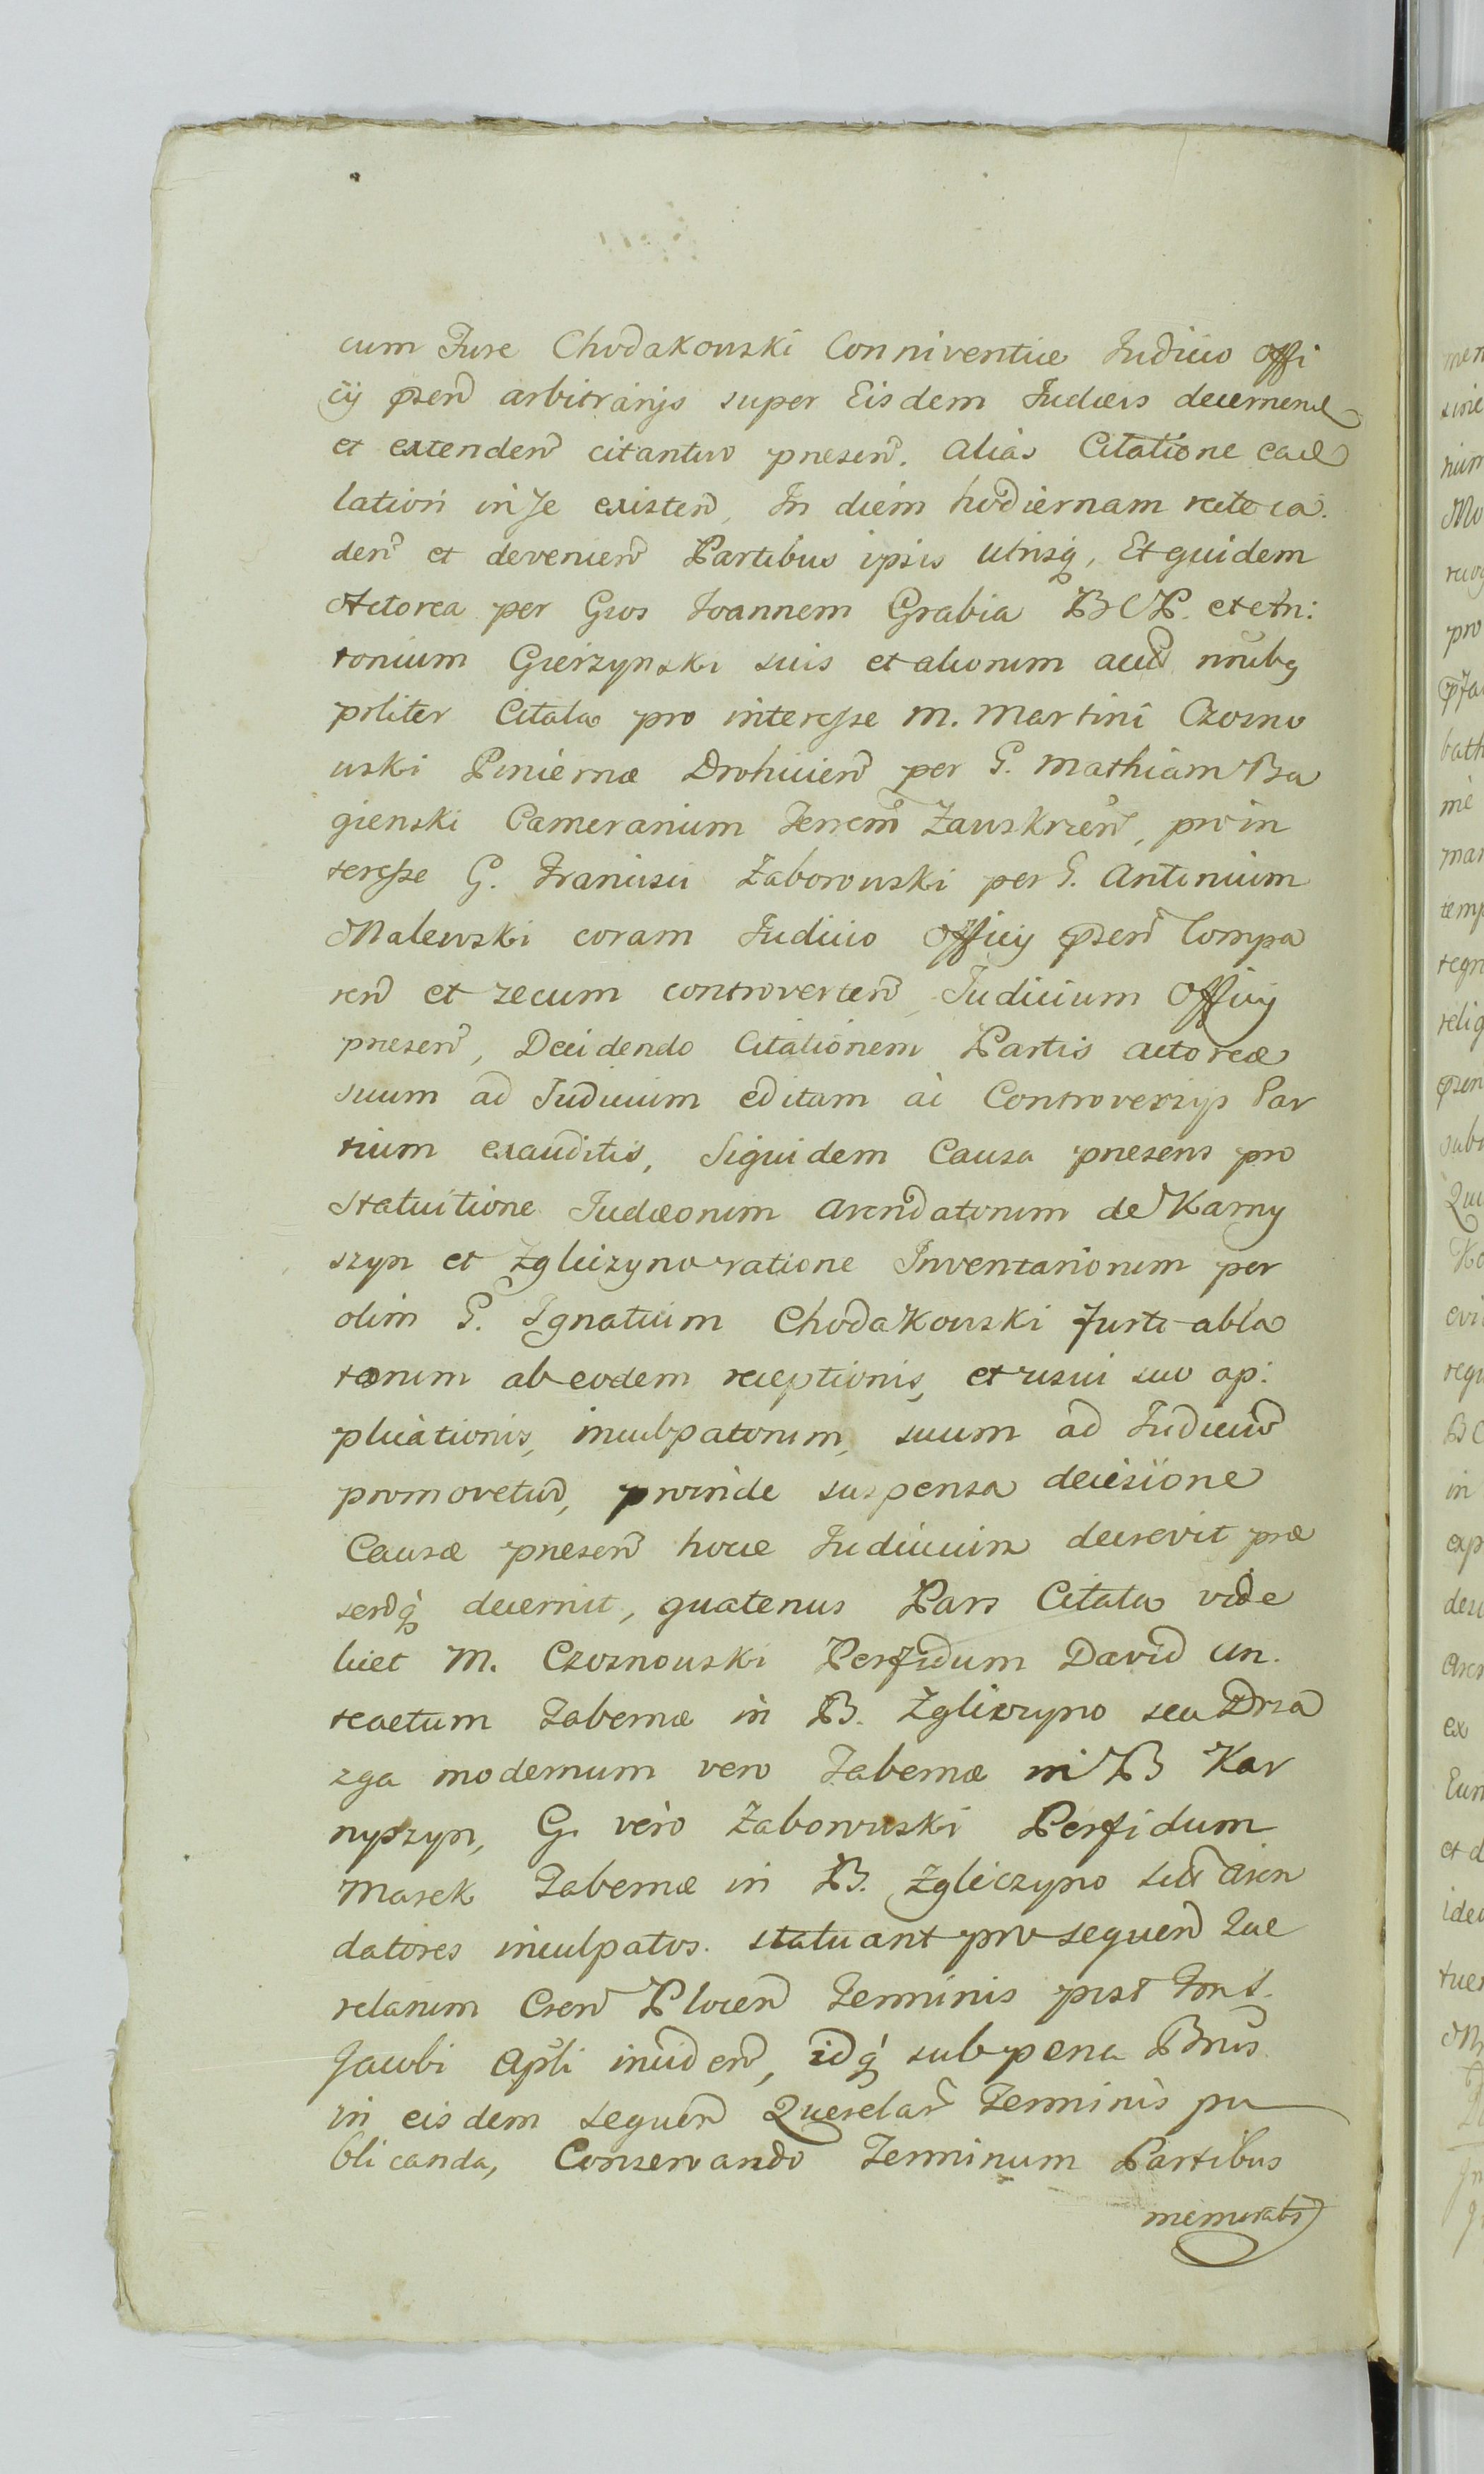 cum Fure Chodakowski Conniventiæ Judicio Offi
cij psen arbitrarijs super Eisdem Judæis decernend
et extenden citantur presen. alias Citatione
lation in se existen, In diem hodiernam recte ca.
den et devenien Partibus ipsis utrisq, Et quidem
Actorea per Gsos Joannem Grabia B C P. et An:
tonium Gierzynski suis et aliorum
prliter Citata pro interesse M. Martini Czosno
wski Pincernæ Drohicien per G. Mathiam Ba
gienski Camerarium Terrem Zawskrzen, pro in
teresse G. Francisci Zaborowski per G. Antonium
Malewski coram Judicio Officij psen Compa
ren et secum controverten, Judicium Officij
presen, Decidendo Citationem Partis actoreæ
suum ad Judicium editam ac Controversijs Par
tium exauditis, Siquidem Causa presens pro
Statuitione Judæorum Arendatorum de Karny
szyn et Zgliczyno ratione Inventariorum per
olim G. Ignatium Chodakowski furto abla
torum ab eodem receptionis, et usui suo ap:
plicationis, inculpatorum, suum ad Judiciu
promovetur, proinde suspensa decisione
Causæ presen hocce Judicium decrevit præ
senq decernit, quatenus Pars Citata vide
licet M. Czosnowski Perfidum David an.
teactum Tabernæ in B. Zgliczyno seu Drza
zga modernum vero Tabernæ in B Kar
nyszyn, G. vero Zaborowski Perfidum
Marek Tabernæ in B. Zgliczyno seu Aren
datores inculpatos. statuant pro sequen Que
relarum Csen Plocen Terminis post
Jacobi Apli inciden, idq sub pena Bnis
in eisdem sequen Querelar Terminis pu
blicanda, Conservando Terminum Partibus
memoratis